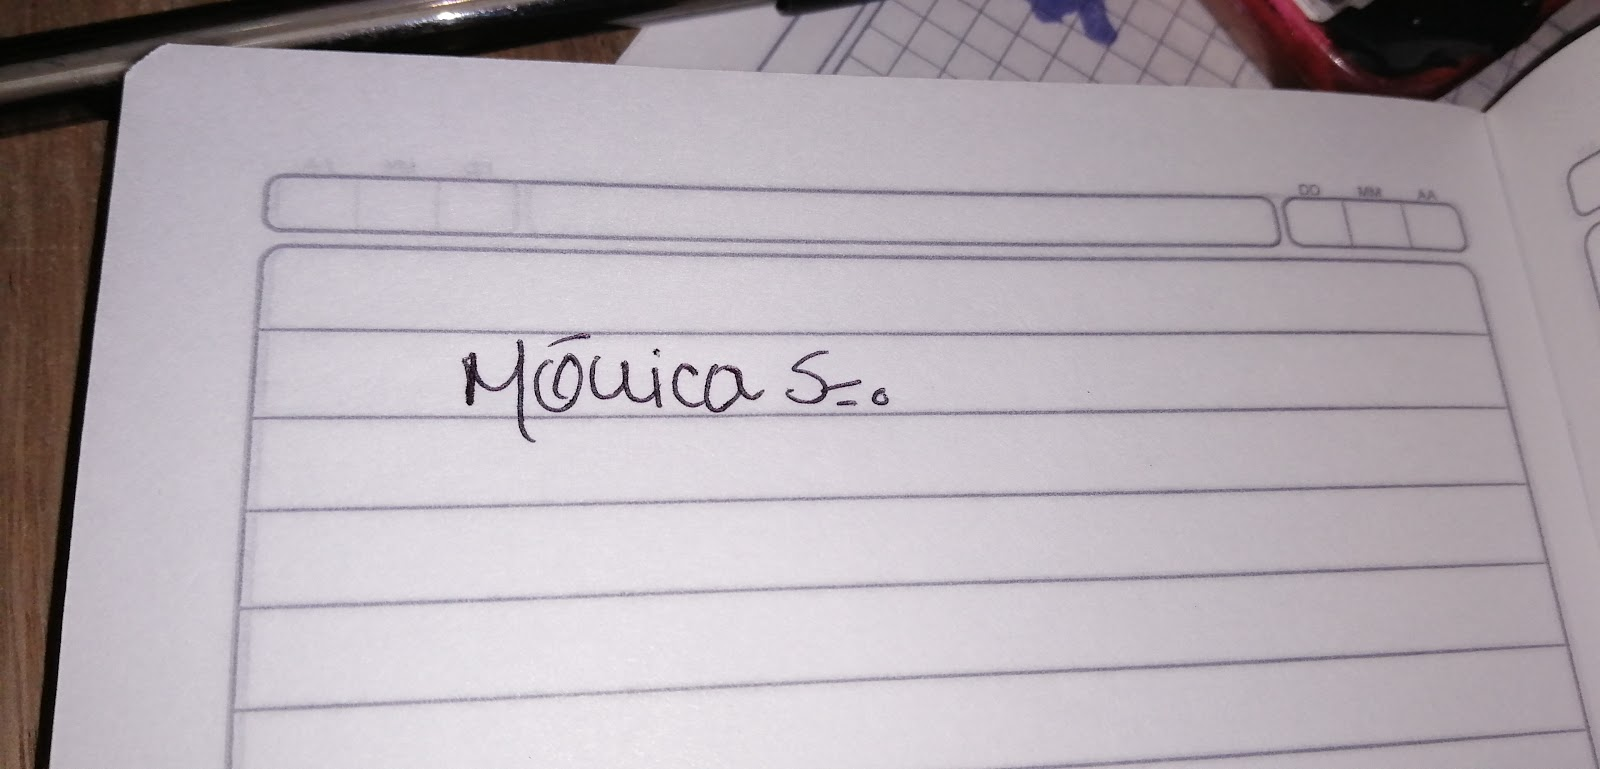 DD MM AA
Mónica S=.